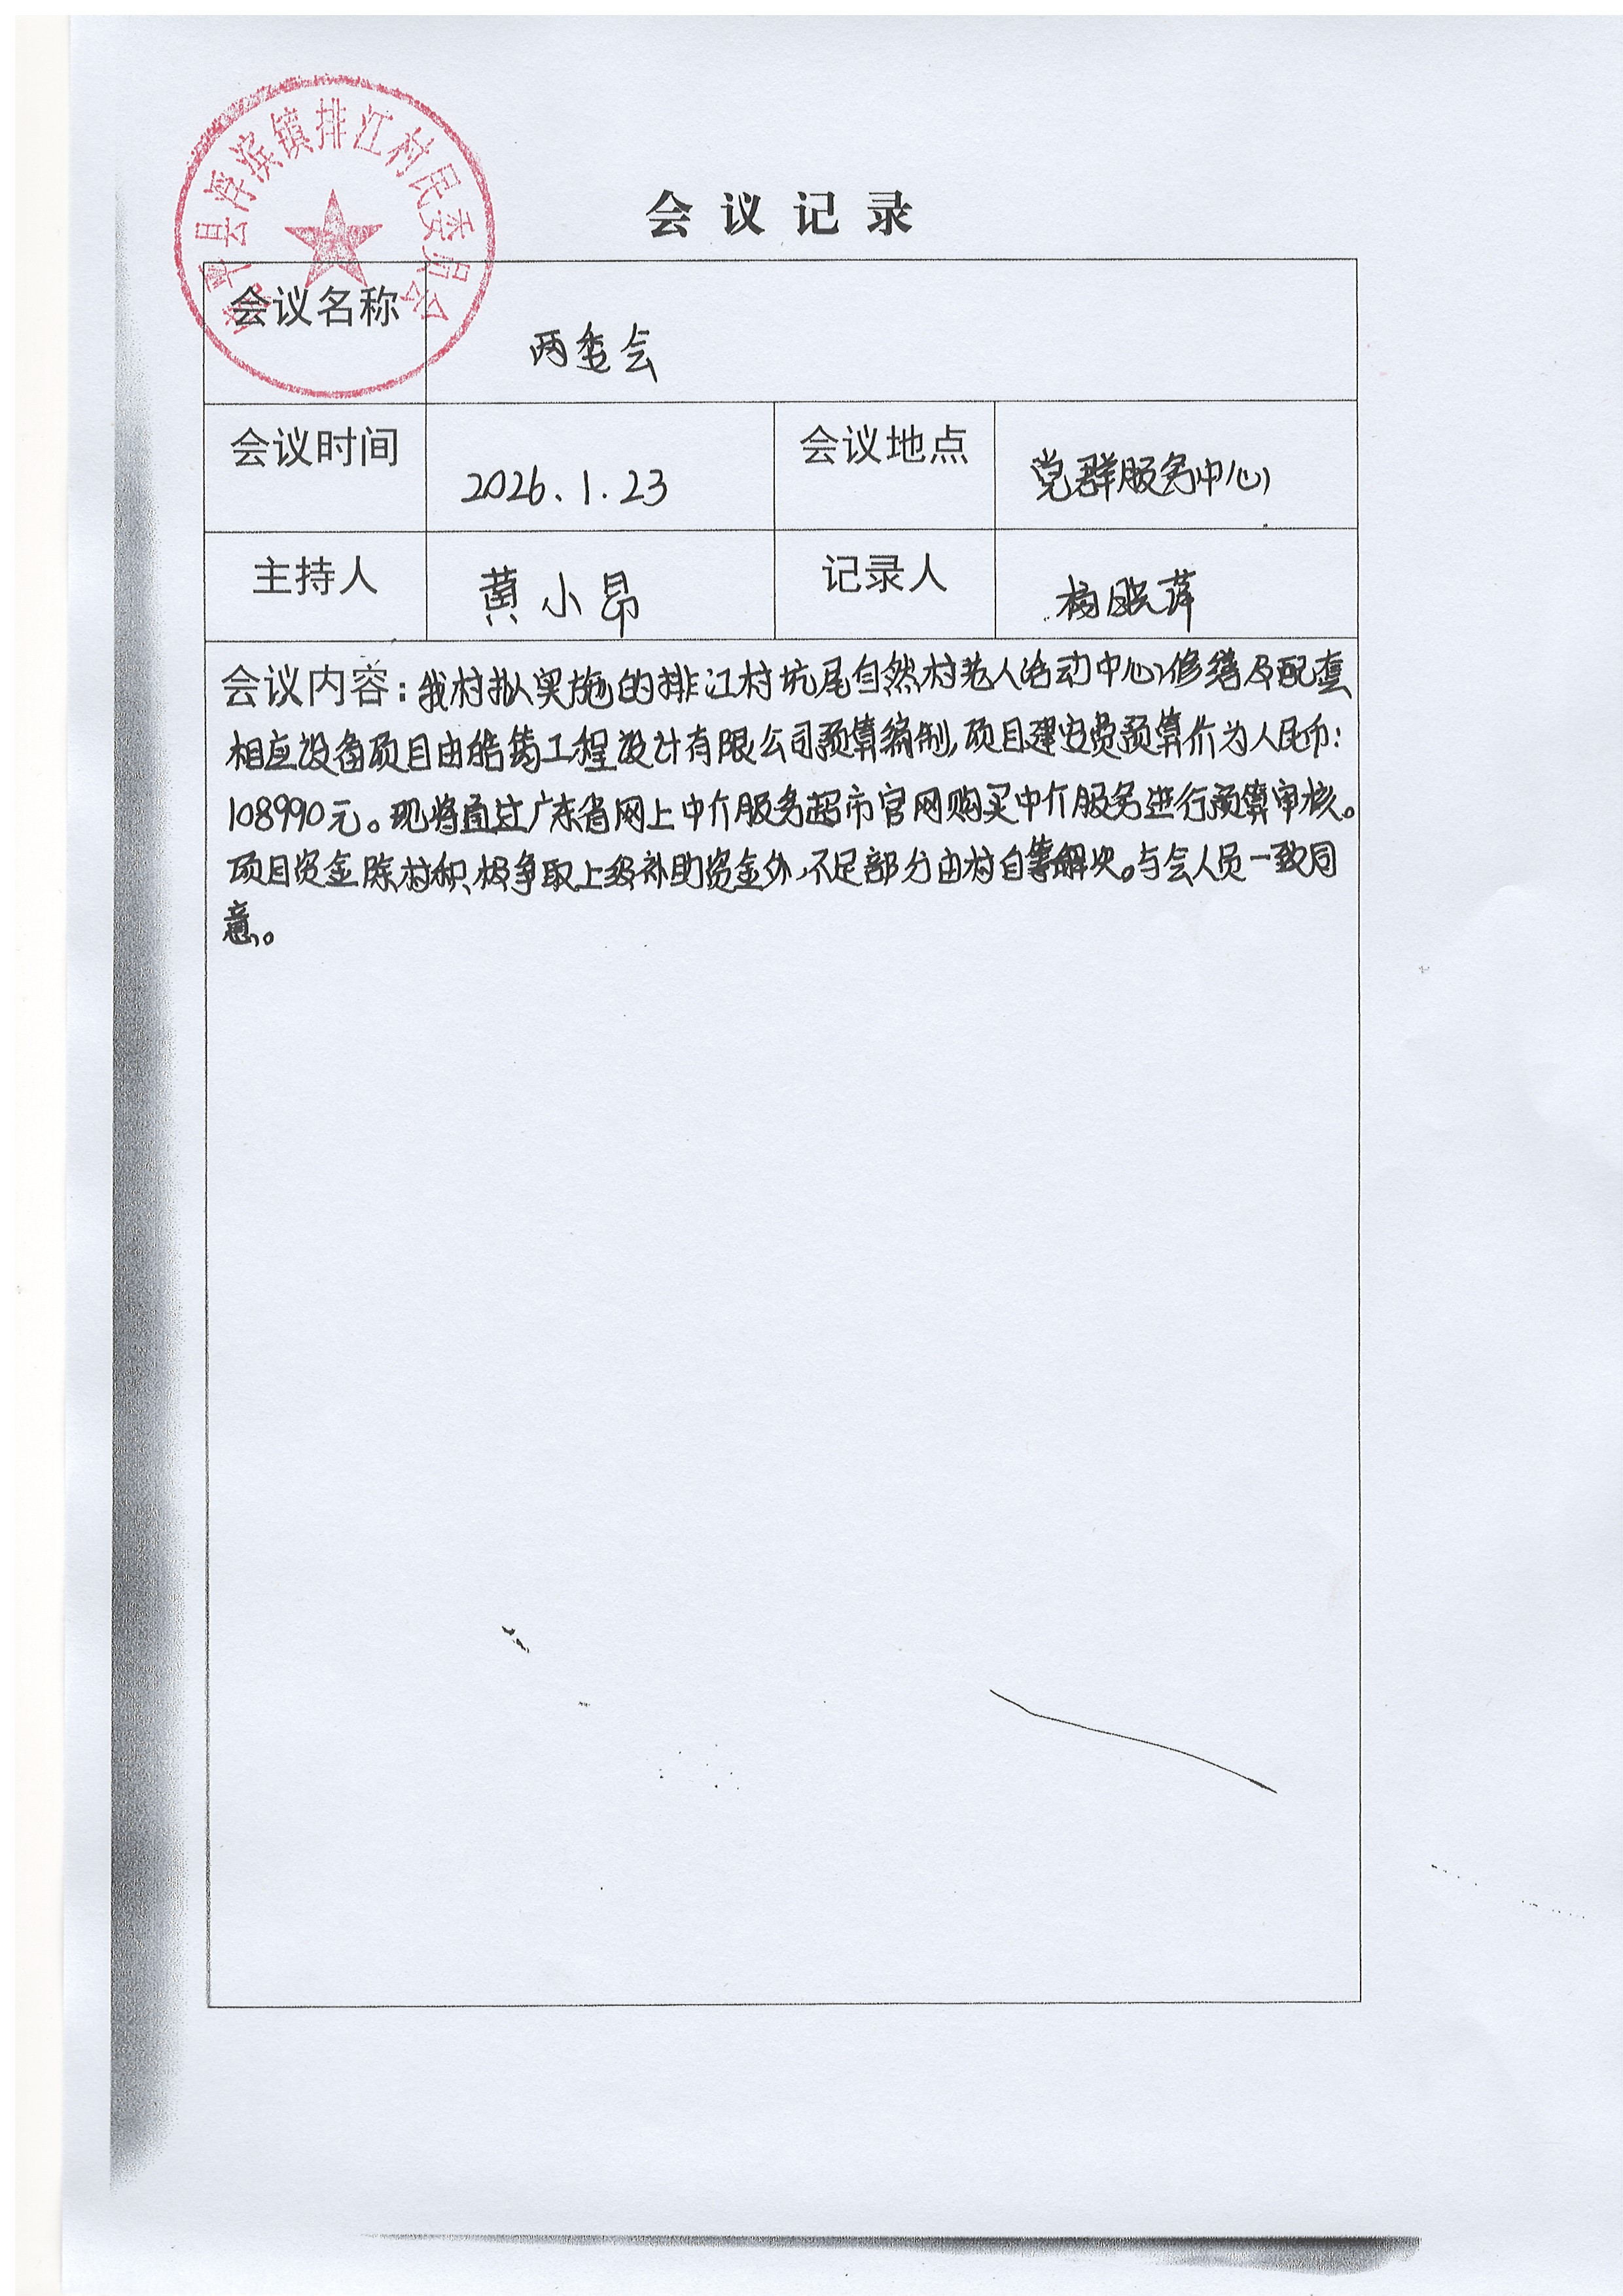 饶平县浮滨镇排江村民委员会
会议记录
会议名称
两委会
会议时间
2026.1.23
会议地点
党群服务中心
主持人
黄小昂
记录人
杨
会议内容:我村拟实施的排江村坑尾自然村老人活动中心修缮及配套
相应设备项目由皓筑工程设计有限公司预算编制,项目建安费预算价为人民币:
108990元。现将通过广东省网上中介服务超市官网购买中介服务进行预算审核。
项目资金除村积极争取上级补助资金外,不足部分由村自筹解决。与会人员一致同
意。